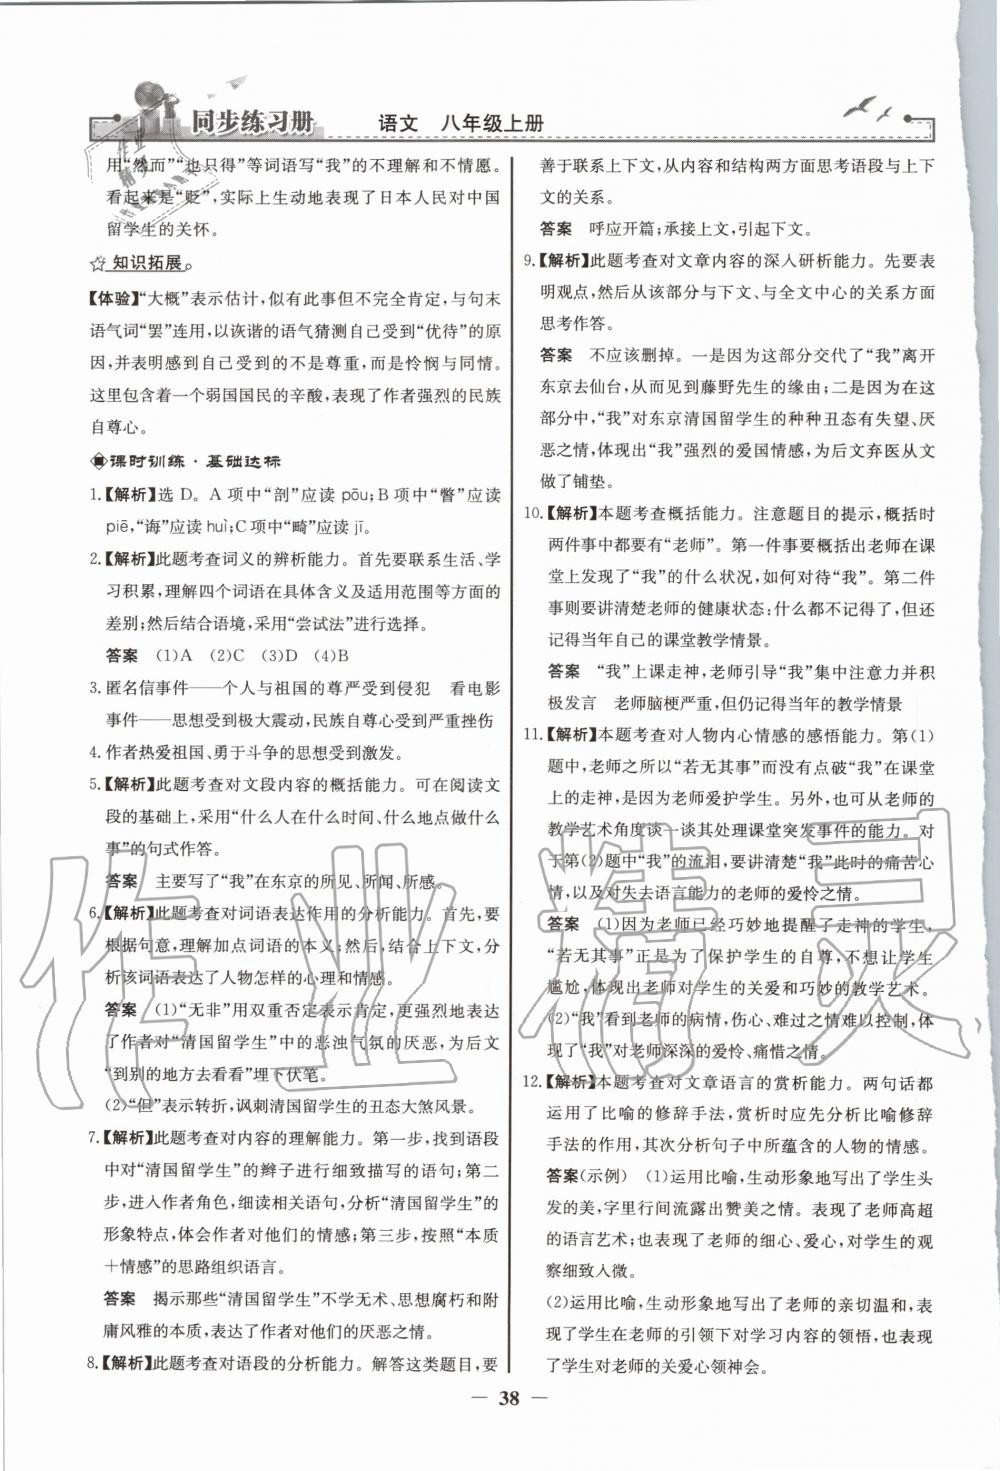 同步练习册 语文 八年级上册
用“然而”“也只得”等词语写“我”的不理解和不情愿。
看起来是“贬”，实际上生动地表现了日本人民对中国
留学生的关怀。
知识拓展
【体验】“大概”表示估计，似有此事但不完全肯定，与句末
语气词“罢”连用，以诙谐的语气猜测自己受到“优待”的原
因，并表明感到自己受到的不是尊重，而是怜悯与同情。
这里包含着一个弱国国民的辛酸，表现了作者强烈的民族
自尊心。
课时训练·基础达标
1.【解析】选 D。A 项中“剖”应读 pōu；B 项中“瞥”应读
piē，“诲”应读 huì；C 项中“畸”应读 jī。
2.【解析】此题考查词义的辨析能力。首先要联系生活、学
习积累，理解四个词语在具体含义及适用范围等方面的
差别；然后结合语境，采用“尝试法”进行选择。
答案 (1)A (2)C (3)D (4)B
3. 匿名信事件——个人与祖国的尊严受到侵犯 看电影
事件——思想受到极大震动，民族自尊心受到严重挫伤
4. 作者热爱祖国、勇于斗争的思想受到激发。
5.【解析】此题考查对文段内容的概括能力。可在阅读文
段的基础上，采用“什么人在什么时间、什么地点做什么
事”的句式作答。
答案 主要写了“我”在东京的所见、所闻、所感。
6.【解析】此题考查对词语表达作用的分析能力。首先，要
根据句意，理解加点词语的本义；然后，结合上下文，分
析该词语表达了人物怎样的心理和情感。
答案 (1)“无非”用双重否定表示肯定，更强烈地表达
了作者对“清国留学生”中的恶浊气氛的厌恶，为后文
“到别的地方去看看”埋下伏笔。
(2)“但”表示转折，讽刺清国留学生的丑态大煞风景。
7.【解析】此题考查对内容的理解能力。第一步，找到语段
中对“清国留学生”的辫子进行细致描写的语句；第二
步，进入作者角色，细读相关语句，分析“清国留学生”的
形象特点，体会作者对他们的情感；第三步，按照“本质
＋情感”的思路组织语言。
答案 揭示那些“清国留学生”不学无术、思想腐朽和附
庸风雅的本质，表达了作者对他们的厌恶之情。
8.【解析】此题考查对语段的分析能力。解答这类题目，要
善于联系上下文，从内容和结构两方面思考语段与上下
文的关系。
答案 呼应开篇；承接上文，引起下文。
9.【解析】此题考查对文章内容的深入研析能力。先要表
明观点，然后从该部分与下文、与全文中心的关系方面
思考作答。
答案 不应该删掉。一是因为这部分交代了“我”离开
东京去仙台，从而见到藤野先生的缘由；二是因为在这
部分中，“我”对东京清国留学生的种种丑态有失望、厌
恶之情，体现出“我”强烈的爱国情感，为后文弃医从文
做了铺垫。
10.【解析】本题考查概括能力。注意题目的提示，概括时
两件事中都要有“老师”。第一件事要概括出老师在课
堂上发现了“我”的什么状况，如何对待“我”。第二件
事则要讲清楚老师的健康状态：什么都不记得了，但还
记得当年自己的课堂教学情景。
答案 “我”上课走神，老师引导“我”集中注意力并积
极发言 老师脑梗严重，但仍记得当年的教学情景
11.【解析】本题考查对人物内心情感的感悟能力。第(1)
题中，老师之所以“若无其事”而没有点破“我”在课堂
上的走神，是因为老师爱护学生。另外，也可从老师的
教学艺术角度谈一谈其处理课堂突发事件的能力。对
于第(2)题中“我”的流泪，要讲清楚“我”此时的痛苦心
情，以及对失去语言能力的老师的爱怜之情。
答案 (1)因为老师已经巧妙地提醒了走神的学生，
“若无其事”正是为了保护学生的自尊，不想让学生
尴尬，体现出老师对学生的关爱和巧妙的教学艺术。
(2)“我”看到老师的病情，伤心、难过之情难以控制，体
现了“我”对老师深深的爱怜、痛惜之情。
12.【解析】本题考查对文章语言的赏析能力。两句话都
运用了比喻的修辞手法，赏析时应先分析比喻修辞
手法的作用，其次分析句子中所蕴含的人物的情感。
答案(示例) (1)运用比喻，生动形象地写出了学生头
发的美，字里行间流露出赞美之情。表现了老师高超
的语言艺术；也表现了老师的细心、爱心，对学生的观
察细致入微。
(2)运用比喻，生动形象地写出了老师的亲切温和，表
现了学生在老师的引领下对学习内容的领悟，也表现
了学生对老师的关爱心领神会。
— 38 —
作业精灵